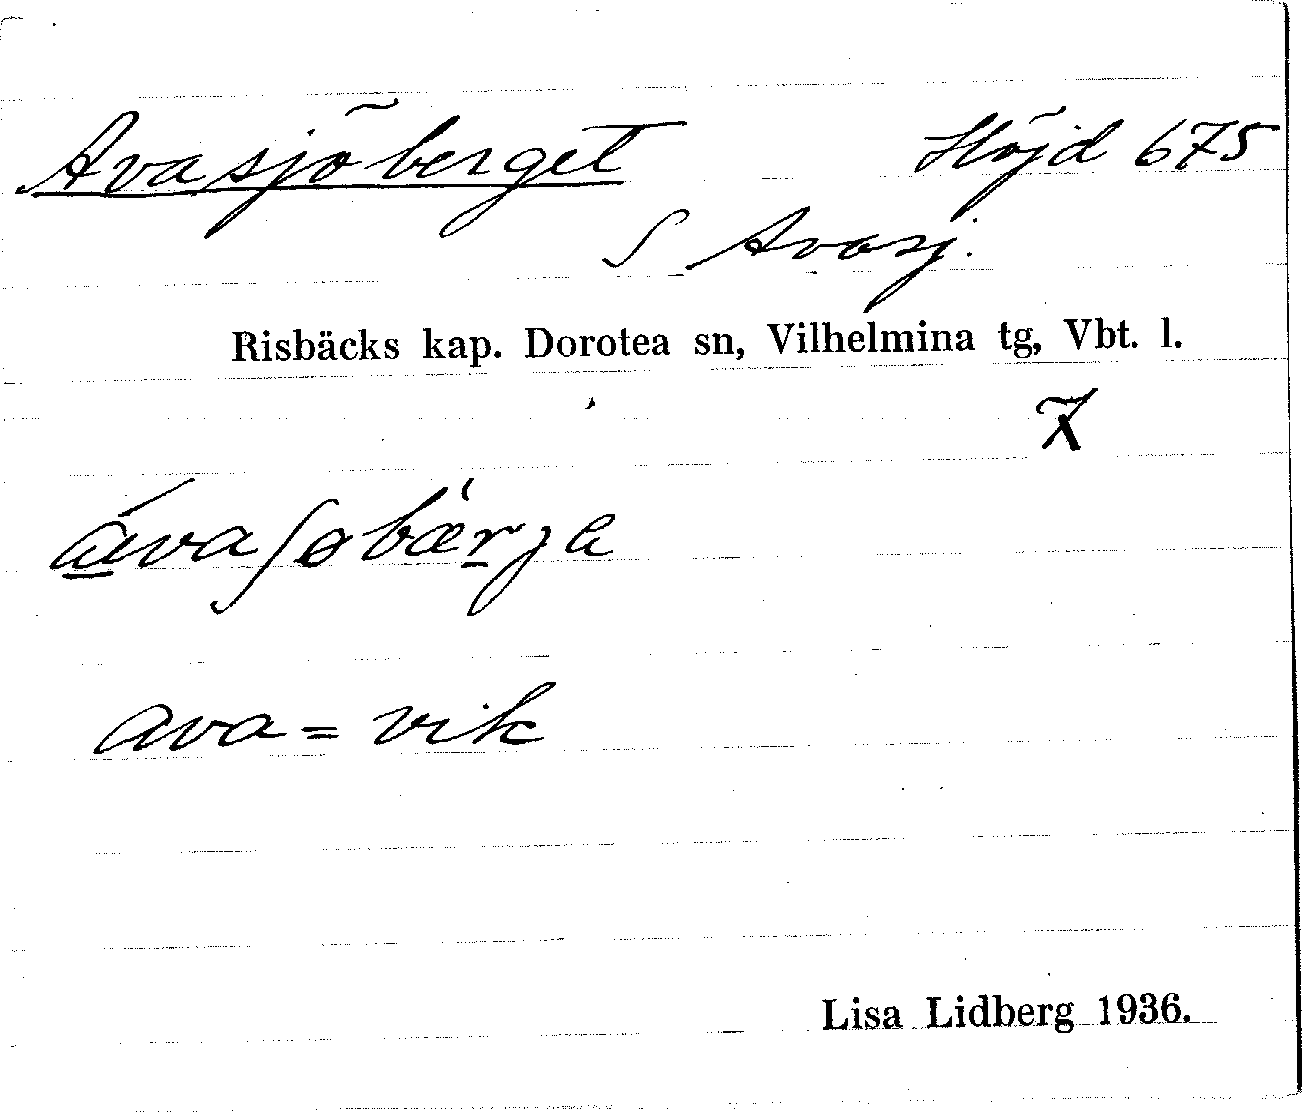 Avasjöberget Höjd 675
S Avasj.
Risbäcks kap. Dorotea sn, Vilhelmina tg, Vbt. l.
á̲vaʃøbæ̀r̲ja
ava = vik
Lisa Lidberg 1936.